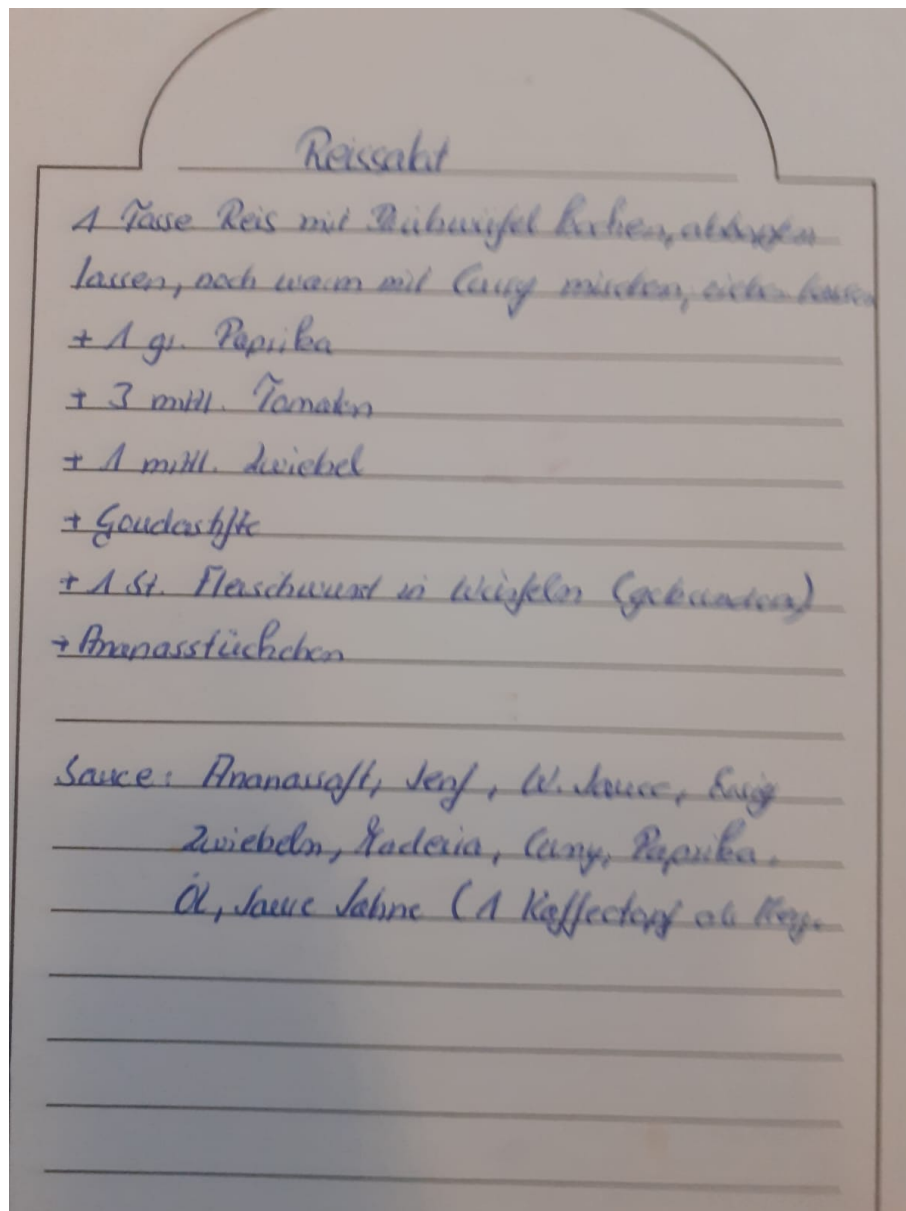 Reissalat
1 Tasse Reis mit Brühwürfel kochen, abtropfen
lassen, noch warm mit Curry mischen, ziehen lassen
+ 1 gr. Paprika
+ 3 mittl. Tomaten
+ 1 mittl. Zwiebel
+ Goudastifte
+ 1 St. Fleischwurst in Würfeln
+ Ananasstückchen
Sauce: Ananassaft, Senf, W. Sauce, Essig
Zwiebeln, Madeira, Curry, Paprika.
Öl, saure Sahne (1 Kaffeetopf als